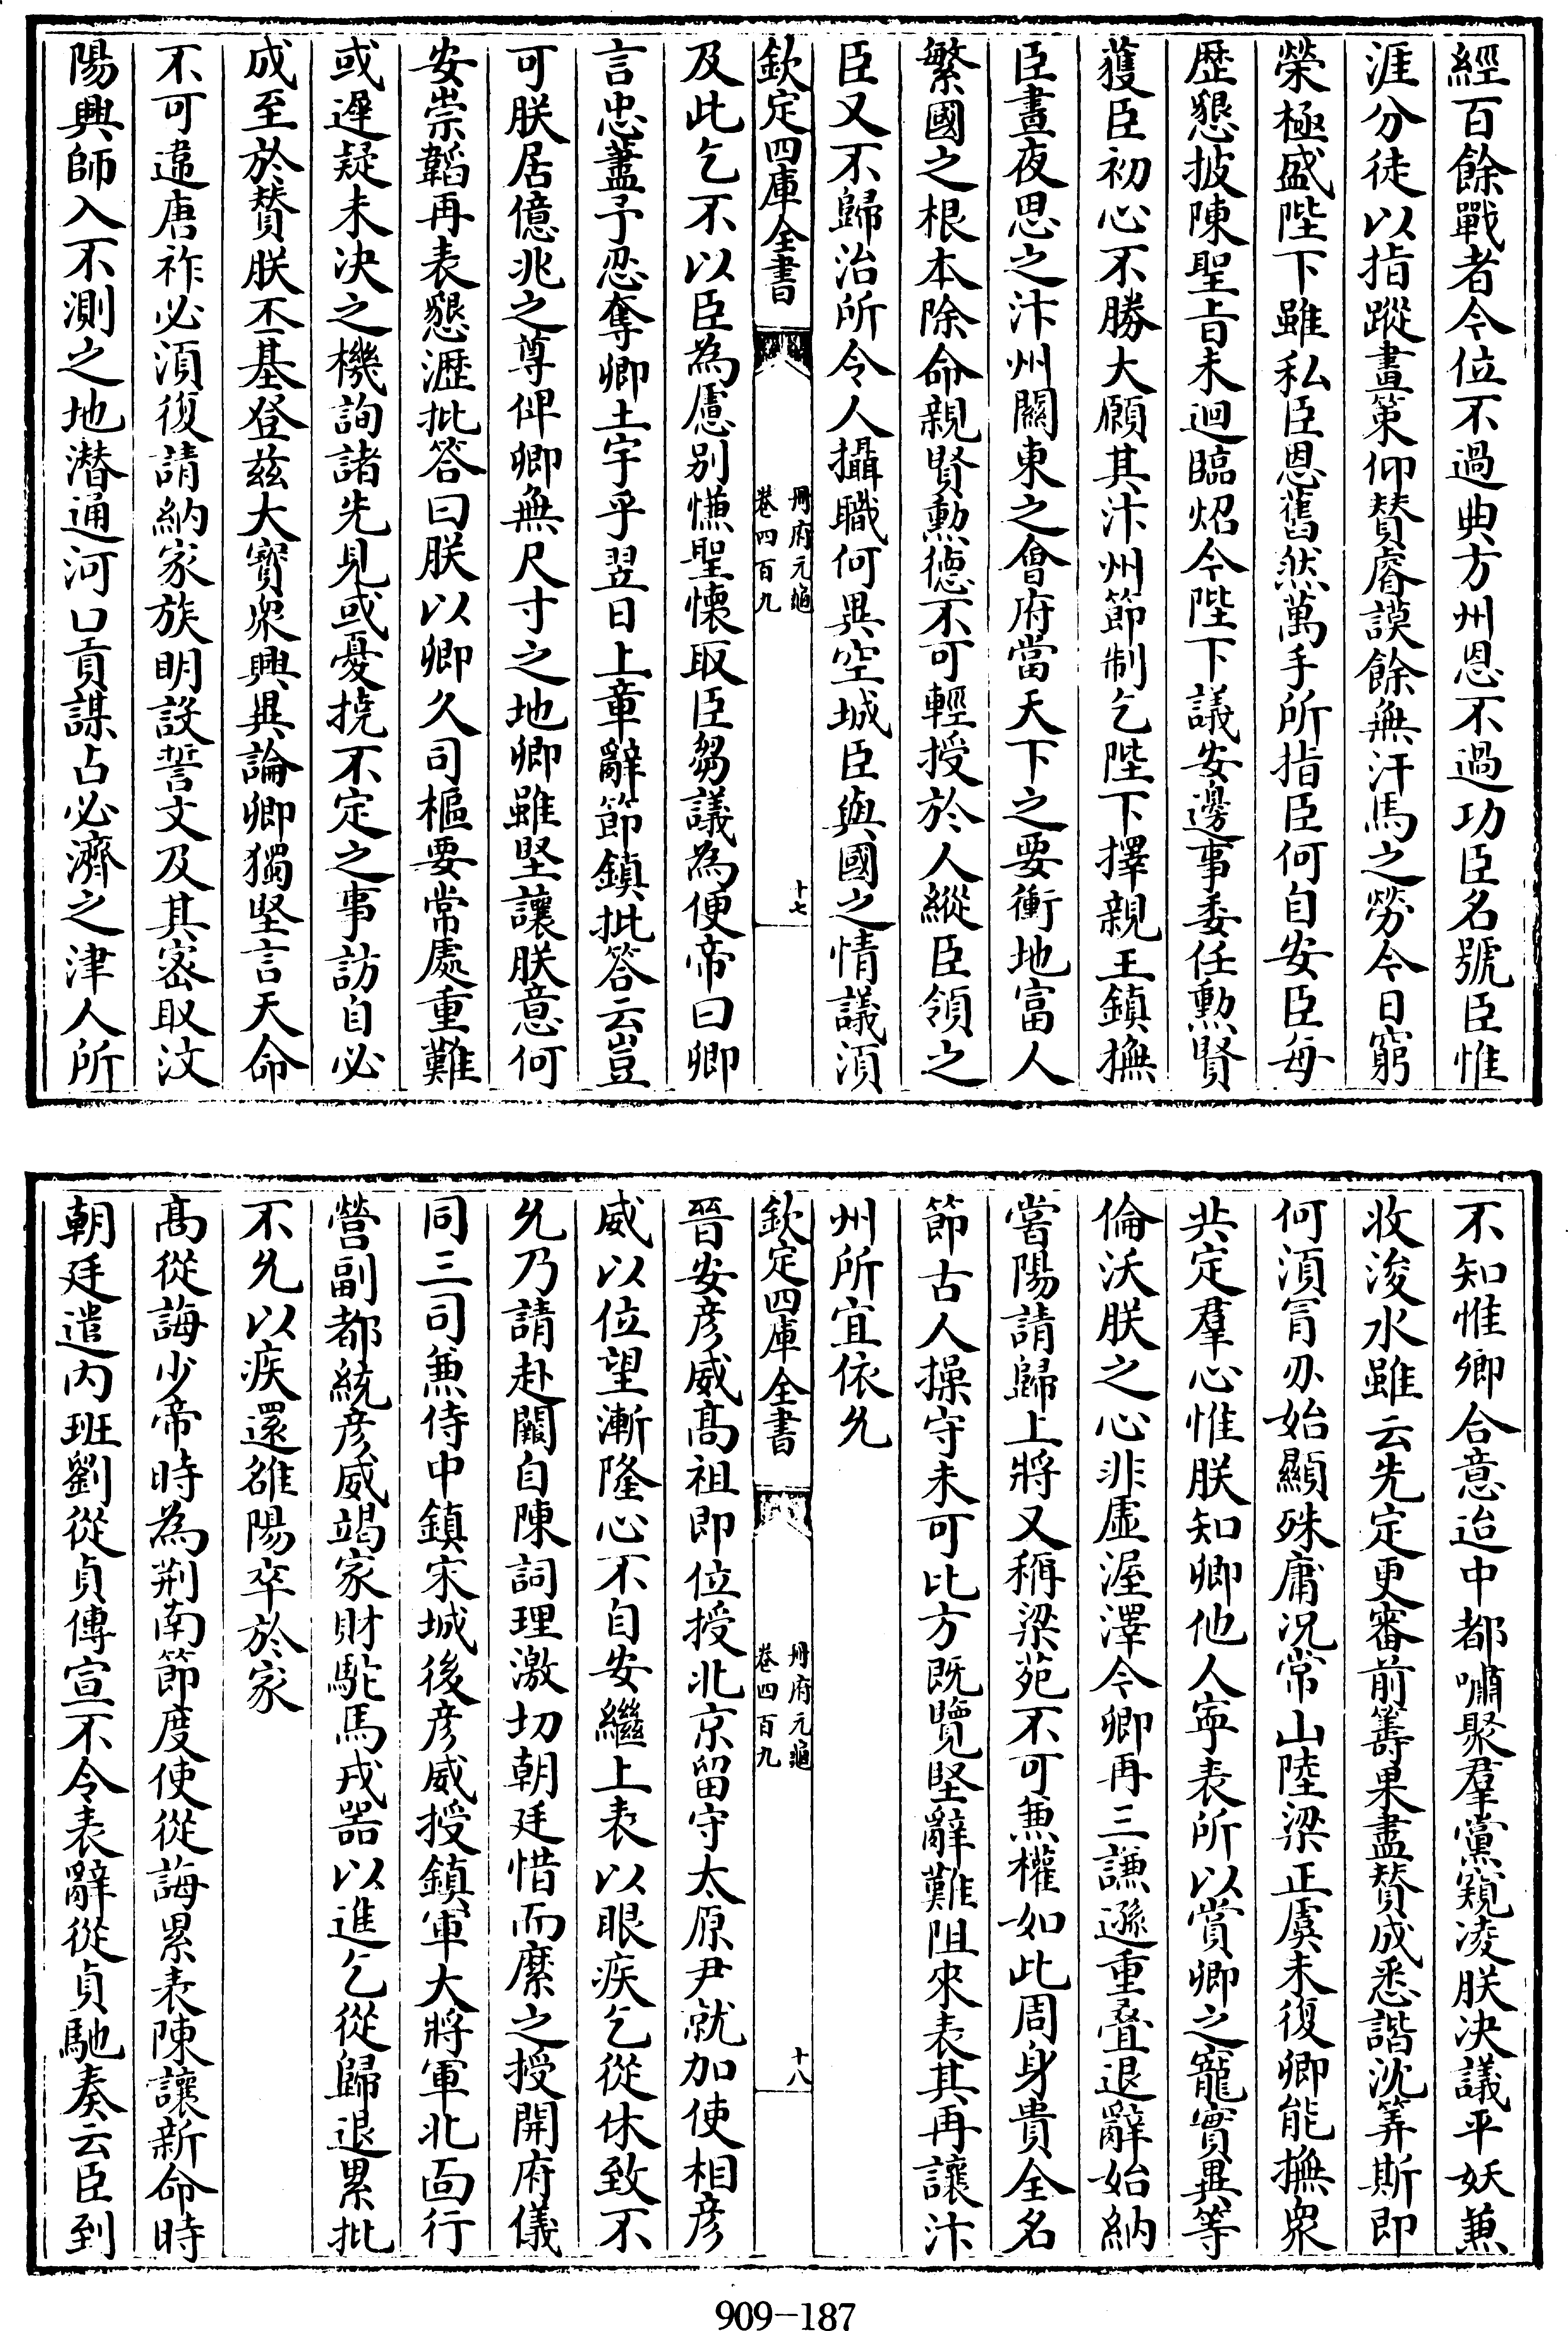 經百餘戰者今位不過典方州恩不過功臣名號臣惟
涯分徒以指蹤畫策仰賛睿謨餘無汗馬之勞今日窮
榮極盛陛下雖私臣恩舊然萬手所指臣何自安臣每
歴懇披陳聖㫖未迴臨炤今陛下議安邊事委任勲賢
獲臣初心不勝大願其汴州節制乞陛下擇親王鎮撫
臣晝夜思之汴州關東之㑹府當天下之要衝地富人
繁國之根本除命親賢勲徳不可輕授於人縱臣領之
臣又不歸治所令人攝職何異空城臣與國之情議湏
欽定四庫全書
冊府元龜
卷四百九
十七
及此乞不以臣為慮别慊聖懐取臣芻議為便帝曰卿
言忠藎予忍奪卿土宇乎翌日上章辭節鎮批答云豈
可朕居億兆之尊俾卿無尺寸之地卿雖堅讓朕意何
安崇韜再表懇瀝批答曰朕以卿久司樞要常處重難
或遲疑未決之機詢諸先見或憂撓不定之事訪自必
成至於賛朕丕基登兹大寳衆興異論卿獨堅言天命
不可違唐祚必湏復請納家族明設誓文及其宻取汶
陽興師入不測之地潜通河口貢謀占必濟之津人所
不知惟卿合意迨中都嘯聚羣黨窺凌朕决議平妖兼
收浚水雖云先定更審前籌果盡賛成悉諧沈筭斯即
何湏冒刃始顯殊庸况常山陸梁正虞未復卿能撫衆
共定羣心惟朕知卿他人寧表所以賞卿之寵實異等
倫沃朕之心非虚渥澤今卿再三謙遜重叠退辭始納
嘗陽請歸上將又稱梁苑不可兼權如此周身貴全名
節古人操守未可比方既覽堅辭難阻來表其再讓汴
州所宜依允
欽定四庫全書
冊府元龜
卷四百九
十八
晉安彦威髙祖即位授北京留守太原尹就加使相彦
威以位望漸隆心不自安繼上表以眼疾乞從休致不
允乃請赴闕自陳詞理激切朝廷惜而縻之授開府儀
同三司兼侍中鎮宋城後彦威授鎮軍大將軍北面行
營副都統彦威竭家財駞馬戎器以進乞從歸退累批
不允以疾還雒陽卒於家
髙從誨少帝時為荆南節度使從誨累表陳讓新命時
朝廷遣内班劉從貞傳宣不令表辭從貞馳奏云臣到
909-187